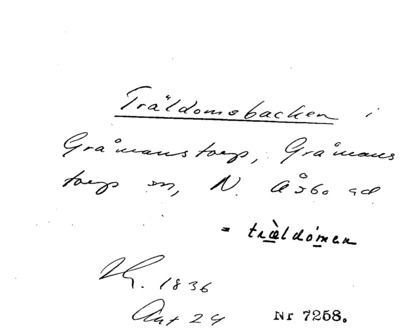 Träldomsbacken i
Gråmanstorp, Gråmans
torp sn, N. Åsbo hd
= träldómen
1836
Ant 24 Nr 7258.